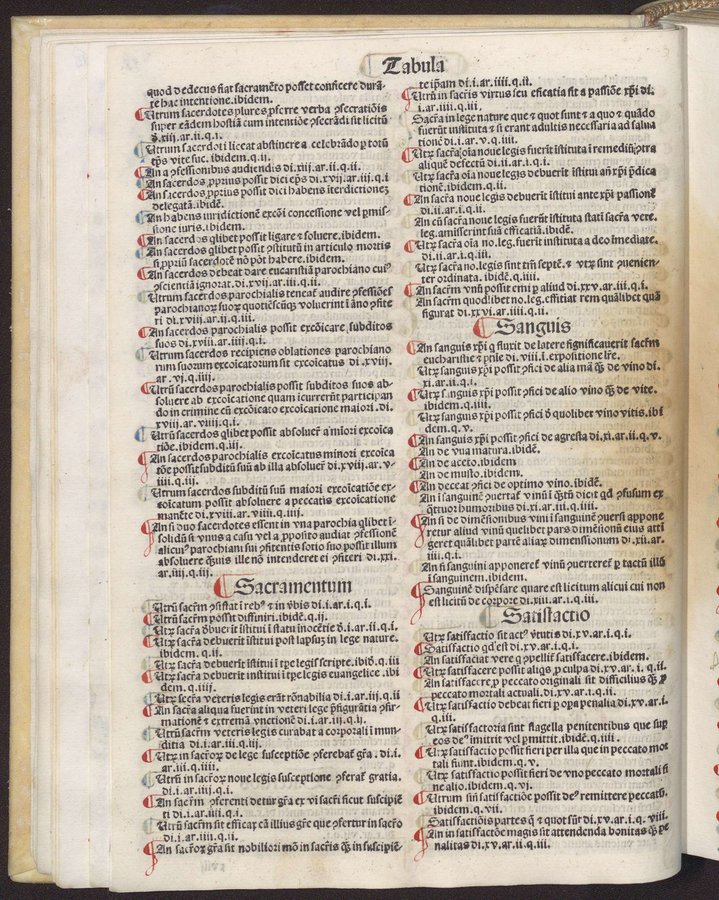 Tabula
quod dedecus fiat sacramēto posset conficere durā-
te hac intentione. ibidem.
Utrum sacerdotes plures ꝓferre verba ↄsecratiōis
super eādem hostiā cum intentiōe ↄsecrādi sit licitū
xiij. ar. ii. q. i.
Utrum sacerdoti liceat abstinere a celebrādo ꝑ totū
tp̄s vite sue. ibidem. q. ij.
An a ↄfessionibus audiendis di. xiij. ar. ii. q. ii.
An sacerdos ꝓprius possit dici ep̄s di. xvij. ar. iij. q. i
An sacerdos ꝓprius possit dici habens iterdictionez
delegatā. ibidē.
An habens iuridictionē excōi concessione vel ꝑmis-
sione iuris. ibidem.
An sacerdos qlibet possit ligare ⁊ soluere. ibidem.
An sacerdos qlibet possit ↄstitutū in articulo mortis
si ꝓpriū sacerdotē nō pōt habere. ibidem.
An sacerdos debeat dare eucaristiā parochiano cuiꝰ
ↄscientiā ignorat. di. xvij. ar. iij. q. ii.
Utrum sacerdos parochialis teneat̄ audire ↄfessiōes
parochianoꝝ suoꝝ quotiēscūqꝫ voluerint i āno ↄfite
ri di. xviij. ar. ij. q. iij.
An sacerdos parochialis possit excōicare subditos
suos di. xviij. ar. iiij. q. i.
Utrum sacerdos recipiens oblationes parochiano
rum suorum excōicatorum sit excōicatus di. xviij.
ar. vj. q. iiij.
Utrum sacerdos parochialis possit subditos suos ab-
soluere ab excōicatione quam icurrerūt participan
do in crimine cū excōicato excōicatione maiori. di.
xviij. ar. viiij. q. i.
Utrū sacerdos qlibet possit absoluer̄ a miori excōica
tiōe. ibidem. q. ij.
An sacerdos parochialis excōicatus minori excōica
tōe possit subditū suū ab illa absoluer̄ di. xviij. ar. v-
iiij. q. iij.
Utrum sacerdos subditū suū maiori excōicatiōe ex-
cōicatum possit absoluere a peccatis excōicatione
manēte di. xviij. ar. viiij. q. iiij.
An si duo sacerdotes essent in vna parochia qlibet i-
solidū si vnius a casu vel a ꝓposito audiat ↄfessionē
alicuiꝰ parochiani sui ↄfitentis socio suo possit illum
absoluere quis ille nō intenderet ei ↄfiteri di. xxi.
ar. iij. q. iij.
Sacramentum
Utrū sacr̄m ↄsistat i rebꝰ ⁊ in v̄bis di. i. ar. i. q. i.
Utrū sacr̄m possit diffiniri. ibidē. q. ij.
Utꝝ sacr̄a debuer̄t istitui i statu inocētie di. i. ar. ii. q. i.
Utꝝ sacr̄a debuerit istitui post lapsuz in lege nature.
ibidem. q. ii.
Utꝝ sacr̄a debuerit istitui i tp̄e legis scripte. ibid. q. iii
Utꝝ sacr̄a debuerit istitui i tp̄e legis euangelice. ibi
dem. q. iiij.
Utꝝ sacr̄a veteris legis erāt rōnabilia di. i. ar. iij. q. ii
An sacr̄a aliqua fuerint in veteri lege p̄figuratia ↄfir-
mationē ⁊ extremā vnctionē di. i. ar. iij. q. ij.
Utrū sacr̄m veteris legis curabat a corporali i mun-
ditia di. i. ar. iij. q. iij.
Utꝝ in sacroꝝ de lege susceptiōe ↄferebat̄ gr̄a. di. i.
ar. iij. q. iiij.
Utrū in sacroꝝ noue legis susceptione ↄferat̄ gratia.
di. i. ar. iiij. q. i.
An sacr̄m ↄferenti detur gr̄a ex vi sacr̄i sicut suscipiē
ti di. i. ar. iiij. q. i.
Utrū sacr̄m sit efficax cā illius gr̄e que ↄfertur in sacr̄o
di. i. ar. iiij. q. ii.
An sacroꝝ gr̄a sit nobiliori mō in sacr̄is qꝫ in suscipiē
te ip̄am di. i. ar. iiij. q. ii.
Utrū in sacr̄is virtus seu eficatia sit a passiōe xp̄i di.
i. ar. iiij. q. iij
Sacr̄a in lege nature que ⁊ quot sunt ⁊ a quo ⁊ quādo
fuerūt instituta ⁊ si erant adultis necessaria ad salua
tionē di. i. ar. v. q. iiij.
Utꝝ sacr̄a oīa noue legis fuerit istituta i remediū ↄtra
aliquē defectū di. i. ar. i. q. i.
Utꝝ sacr̄a oīa noue legis debuerit istitui añ xp̄i p̄dica
tionē. ibidem. q. ii.
An sacr̄a noue legis debuerūt istitui ante xp̄i passionē
di. ii. ar. i. q. ii.
An cū sacr̄a noue legis fuerūt istituta stati sacr̄a vete.
leg. amiserint suā efficatiā. ibidē.
Utꝝ sacr̄a oīa no. leg. fuerit instituta a deo imediate.
di. ii. ar. i. q. iii.
Utꝝ sacr̄a no. legis sint tm̄ septē. ⁊ vtꝝ sint ↄuenien-
ter ordinata. ibidē. q. iiij.
An sacr̄m vnū possit emi ꝑ aliud di. xxv. ar. iij. q. i.
An sacr̄m quodlibet no. leg. effitiat rem quālibet quā
figurat di. xxvi. ar. iiij. q. ii.
Sanguis
An sanguis xp̄i q fluxit de latere significauerit sacr̄m
eucharistie ⁊ p̄nle di. viii. i. expositione lr̄e.
Utꝝ sanguis xp̄i possit ↄfici de alia mā qꝫ de vino di.
xi. ar. ii. q. i.
Utꝝ sanguis xp̄i possit ↄfici de alio vino qꝫ de vite.
ibidem. q. iiii.
Utꝝ sanguis xp̄i possit ↄfici d̄ quolibet vino vitis. ibi
dem. q. v.
An sanguis xp̄i possit ↄfici de agresta di. xi. ar. ii. q. v.
An de vua matura. ibidē.
An de aceto. ibidem
An de musto. ibidem.
An deceat ↄfici de optimo vino. ibidē.
An i sanguinē ↄuertat̄ vinū i qtū dicit qd ↄfusum ex
qttuor humoribus di. xi. ar. iij. q. iiij.
An si de dimēsionibus vini i sanguinē ↄuersi appone
retur aliud vinū quelibet pars dimēsionū eius atti
geret quālibet partē aliaꝝ dimensionum di. xii. ar.
iii. q. i.
An si sanguini apponeret̄ vinū ↄuerteret̄ ꝑ tactū illū
i sanguinem. ibidem.
Sanguinē dispēsare quare est licitum alicui cui non
est licitū de corpore di. xiii. ar. i. q. iii.
Satisfactio
Utꝝ satisfactio sit actꝰ v̄tutis di. xv. ar. i. q. i.
Satisfactio qd est di. xv. ar. i. q. i.
An satisfaciat vere q ↄpellit̄ satisfacere. ibidem.
Utꝝ satisfacere possit aliqs ꝓ culpa di. xv. ar. i. q. ii.
An satisfacere ꝓ peccato originali sit difficilius qꝫ ꝓ
peccato mortali actuali. di. xv. ar. i. q. ii.
Utꝝ satisfactio debeat fieri ꝑ opa penalia di. xv. ar. i.
q. iii.
Utꝝ satisfactoria sint flagella penitentibus que sup̄
eos deꝰ imittit vel ꝑmittit. ibidē. q. iiii.
Utꝝ satisfactio possit fieri per illa que in peccato mor
tali fiunt. ibidem. q. v.
Utꝝ satisfactio possit fieri de vno peccato mortali si
ne alio. ibidem. q. vi.
Utrum sint satisfactiōe possit deꝰ remittere peccatū.
ibidem. q. vii.
Satisfactiōis partes q ⁊ quot sūt di. xv. ar. i. q. viii.
An in satisfactōe magis sit attendenda bonitas qꝫ pe
nalitas di. xv. ar. ii. q. iii.